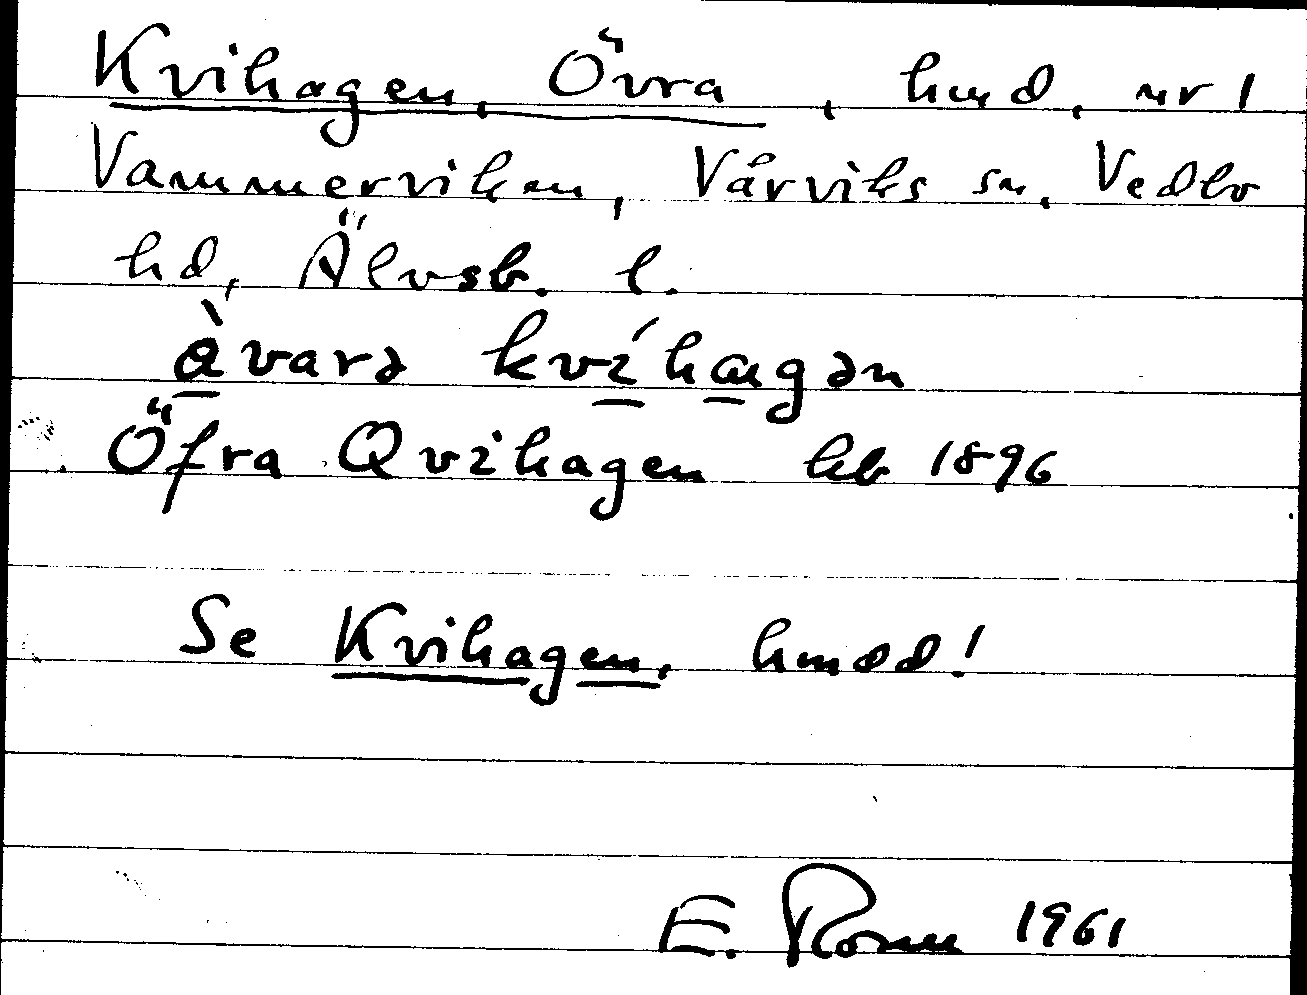 Kvihagen, Övra, hmd, nr 1
Vammerviken, Vårviks sn, Vedbo
hd, Älvsb. l.
àvarə kvíhagən
Öfra Qvihagen hb 1896
Se Kvihagen, hmdd!
E. 1961